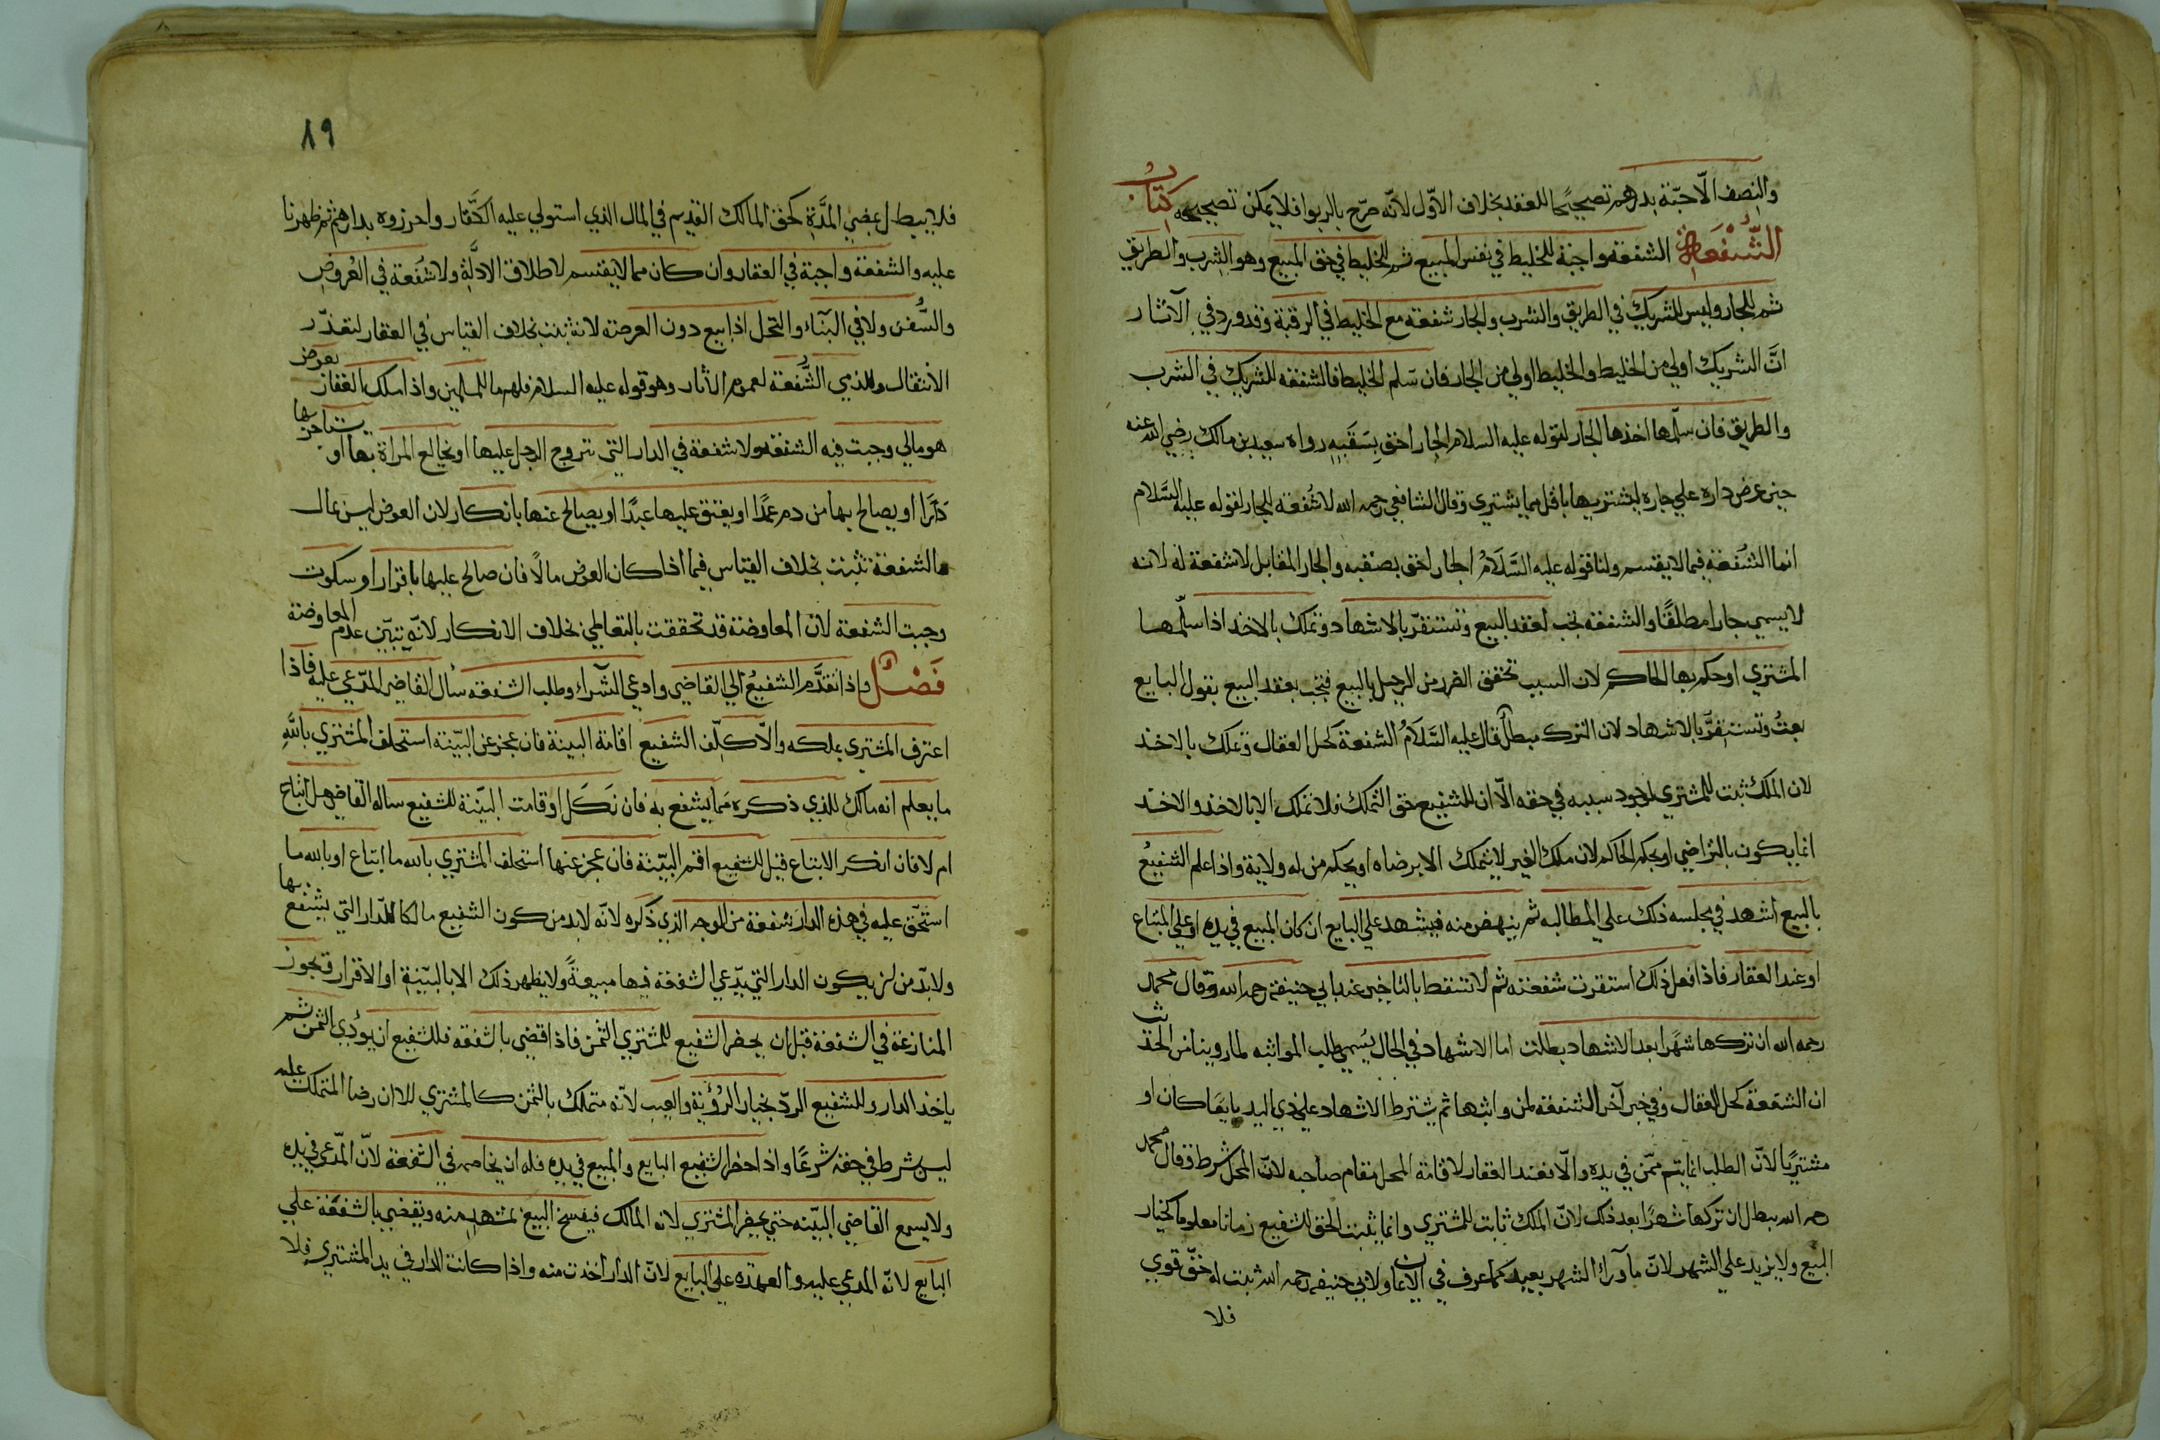 والنصف الّا حبّة بدرهم تصحيحًا للعقد بخلاف الاوّل لانّه صرّح بالربوا فلا يمكن تصحيحه كتاب
الشُّفعَة الشفعة واجبة للخليط في نفس المبيع ثم للخليط في حق المبيع وهو الشرب والطريق
ثم للجار وليس للشريك في الطريق والشرب والجار شفعة مع الخليط في الرقبة وقد ورد في الآثار
انَّ الشريك اولي من الخليط والخليط اولي من الجار فان سلم الخليط فالشفعة للشريك في الشرب
والطريق فان سلّمها اخذها الجار لقوله عليه السلام الجار احق بِسَقَبِه رواه سعيد بن مالك رضي الله عنه
حين عرض داره علي جاره ليشتريها باقل مما يشتري وقال الشافعي رحمه الله لا شُفعة للجار لقوله عليه السّلام
انما الشفعة فيما لا يقتسم ولنا قوله عليه السَّلَامُ الجار احق بصقبه والجار المقابل لا شفعة له لانه
لا يسمي جارا مطلقًا والشفعة تجب بعقد البيع وتستقرّ بالاشهاد وتملك بالاخذ اذا سلّمها
المشتري او حكم بها الحاكم لان السبب تحقق الضرر من الرجل بالبيع فتجب بعقد البيع بقول البايع
بعتُ وتستقرُّ بالاشهاد لان الترك مبطل قال عليه السَّلَامُ الشفعة كحل العقال وتملك بالاخذ
لان الملك ثبت للمشتري لوجود سببه في حقه الّا ان للشفيع حق التملك فلا تملك الا بالاخذ والاخذ
انما يكون بالتراضي او بحكم الحاكم لان ملك الغير لا يتملك الا برضاه او بحكم من له ولاية واذا علم الشفيعُ
بالبيع اشهد في مجلسه ذلك علي المطالبه ثم ينهض منه فيشهد علي البايع ان كان المبيع في يده او علي المبتاع
او عند العقار فاذا فعل ذلك استقرت شفعته ثم لا تسقط بالتاخير عند ابي حنيفة رحمه الله وقال محمد
رحمه الله ان تركها شهرًا بعد الاشهاد بطلت اما الاشهاد في الحال يُسمي طلب المواثبه لما روينا من الحديث
ان الشفعة كحل العقال وفي خبر آخر الشفعة لمن واثبها ثم يشترط الاشهاد علي ذي اليد بايعًا كان او
مشتريًا لانّ الطلب انما يتم ممّن في يده والّا فعند العقار لاقامة المحل مقام صاحبه لانّ المحل شرط وقال محمد
رحمه الله يبطل ان تركها شهرًا بعد ذلك لانّ الملك ثابت للمشتري وانما يثبت الحق للشفيع زمانا معلوما كخيار
المبيع ولا يزيد علي الشهر لانّ ما ورآء الشهر بعيد كما عرف في الايمان ولابي حنيفه رحمه الله ثبت له حقّ قوي
فلا
٨٩
فلا يبطل بمضي المدَّة كحق المالك القديم في المال الذي استولي عليه الكفّار واحرزوه بدارهم ثم ظهرنا
عليه والشفعة واجبة في العقار وان كان مما لا يقتسم لاطلاق الادلَّة ولا شفعة في العُروض
والسُّفن ولا في البنآء والنخل اذا بيع دون العرصة لانه ثبت بخلاف القياس في العقار لتعذّر
الانتقال وللذمي الشُّفعة لعموم الآثار وهو قوله عليه السلام فلهم ما للمسلمين واذا ملك العقار بعوض
هو مالي وجبت فيه الشفعه ولا شفعة في الدار التي تتزوج الرجل عليها او يخالع المراة بها او يستاجر بها
دَارًا او يصالح بها من دم عمدًا او يعتق عليها عبدًا او يصالح عنها بانكار لان العوض ليس بمال
والشفعة تثبت بخلاف القياس فيما اذا كان العوض مالًا فان صالح عليها باقرار او سكوت
وجبت الشفعة لان المعاوضة قد تحققت بالتعاطي بخلاف الانكار لانّه تبيّن عدم المعاوضة
فَصْلٌ واذا تقدَّم الشفيعُ الي القاضي وادعي الشرآء وطلب الشفعة سأل القاضي المدّعي عليه فاذا
اعترف المشتري بملكه والّا كلّف الشفيع اقامة البينة فان عجز عن البيّنة استحلف المشتري باللّهِ
ما يعلم انه مالك للذي ذكره مما يشفع به فان نَكَل او قامت البيّنة للشفيع ساله القاضي هل ابتاع
ام لا فان انكر الابتياع قيل للشفيع اقم البيّنة فان عجز عنها استحلف المشتري بالله ما ابتاع او بالله ما
استحّق عليه في هذه الدار شفعة من الوجه الذي ذكره لانّه لا بد من كون الشفيع مالكا للدّار التي يشفع بها
ولا بدّ من ان يكون الدار التي يدّعي الشفعة فيها مبيعةً ولا يظهر ذلك الا بالبيّنة او الاقرار وتجوز
المنازعة في الشفعة قبل ان يحضر الشفيع للمشتري الثمن فاذا قضي بالشفعة فللشفيع ان يؤدي الثمن ثم
ياخذ الدار وللشفيع الردّ بخيار الرُؤية والعيب لانّه متملك بالثمن كالمشتري الا ان رضا المتملك عليه
ليس شرط في حقه شرعًا واذا احضر الشفيع البايع والمبيع في يده فله ان يخاصمه في الشفعة لانّ المدّعي في يده
ولا يسمع القاضي البيّنه حتي يحضر المشتري لانه المالك فيفسخ البيع بمشهد منه ويقضي بالشفعة علي
البايع لانّه المدعي عليه والعهده علي البايع لانّ الدار اخذت منه واذا كانت الدار في يد المشتري فلا